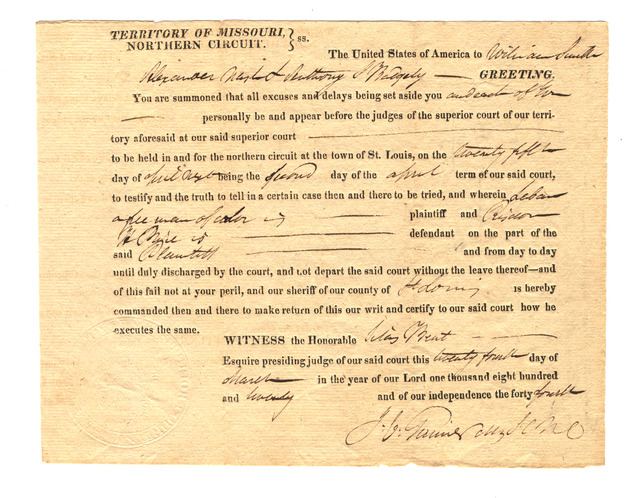 TERRITORY OF MISSOURI, } ss.
NORTHERN CIRCUIT.
The United States of America to William Smith
Alexander Nash & Anthony J Badgely — GREETING,
You are summoned that all excuses and delays being set aside you and each of you
— personally be and appear before the judges of the superior court of our terri-
tory aforesaid at our said superior court
to be held in and for the northern circuit at the town of St. Louis, on the twenty fifth
day of april next being the second day of the april term of our said court,
to testify and the truth to tell in a certain case then and there to be tried, and wherein
a free man of color is — plaintiff and
H Price is — defendant on the part of the
said Plaintiff — and from day to day
until duly discharged by the court, and not depart the said court without the leave thereof—and
of this fail not at your peril, and our sheriff of our county of St Louis is hereby
commanded then and there to make return of this our writ and certify to our said court how he
executes the same.
WITNESS the Honorable Silas Bent
Esquire presiding judge of our said court this twenty fourth day of
March — in the year of our Lord one thousand eight hundred
and twenty and of our independence the forty fourth